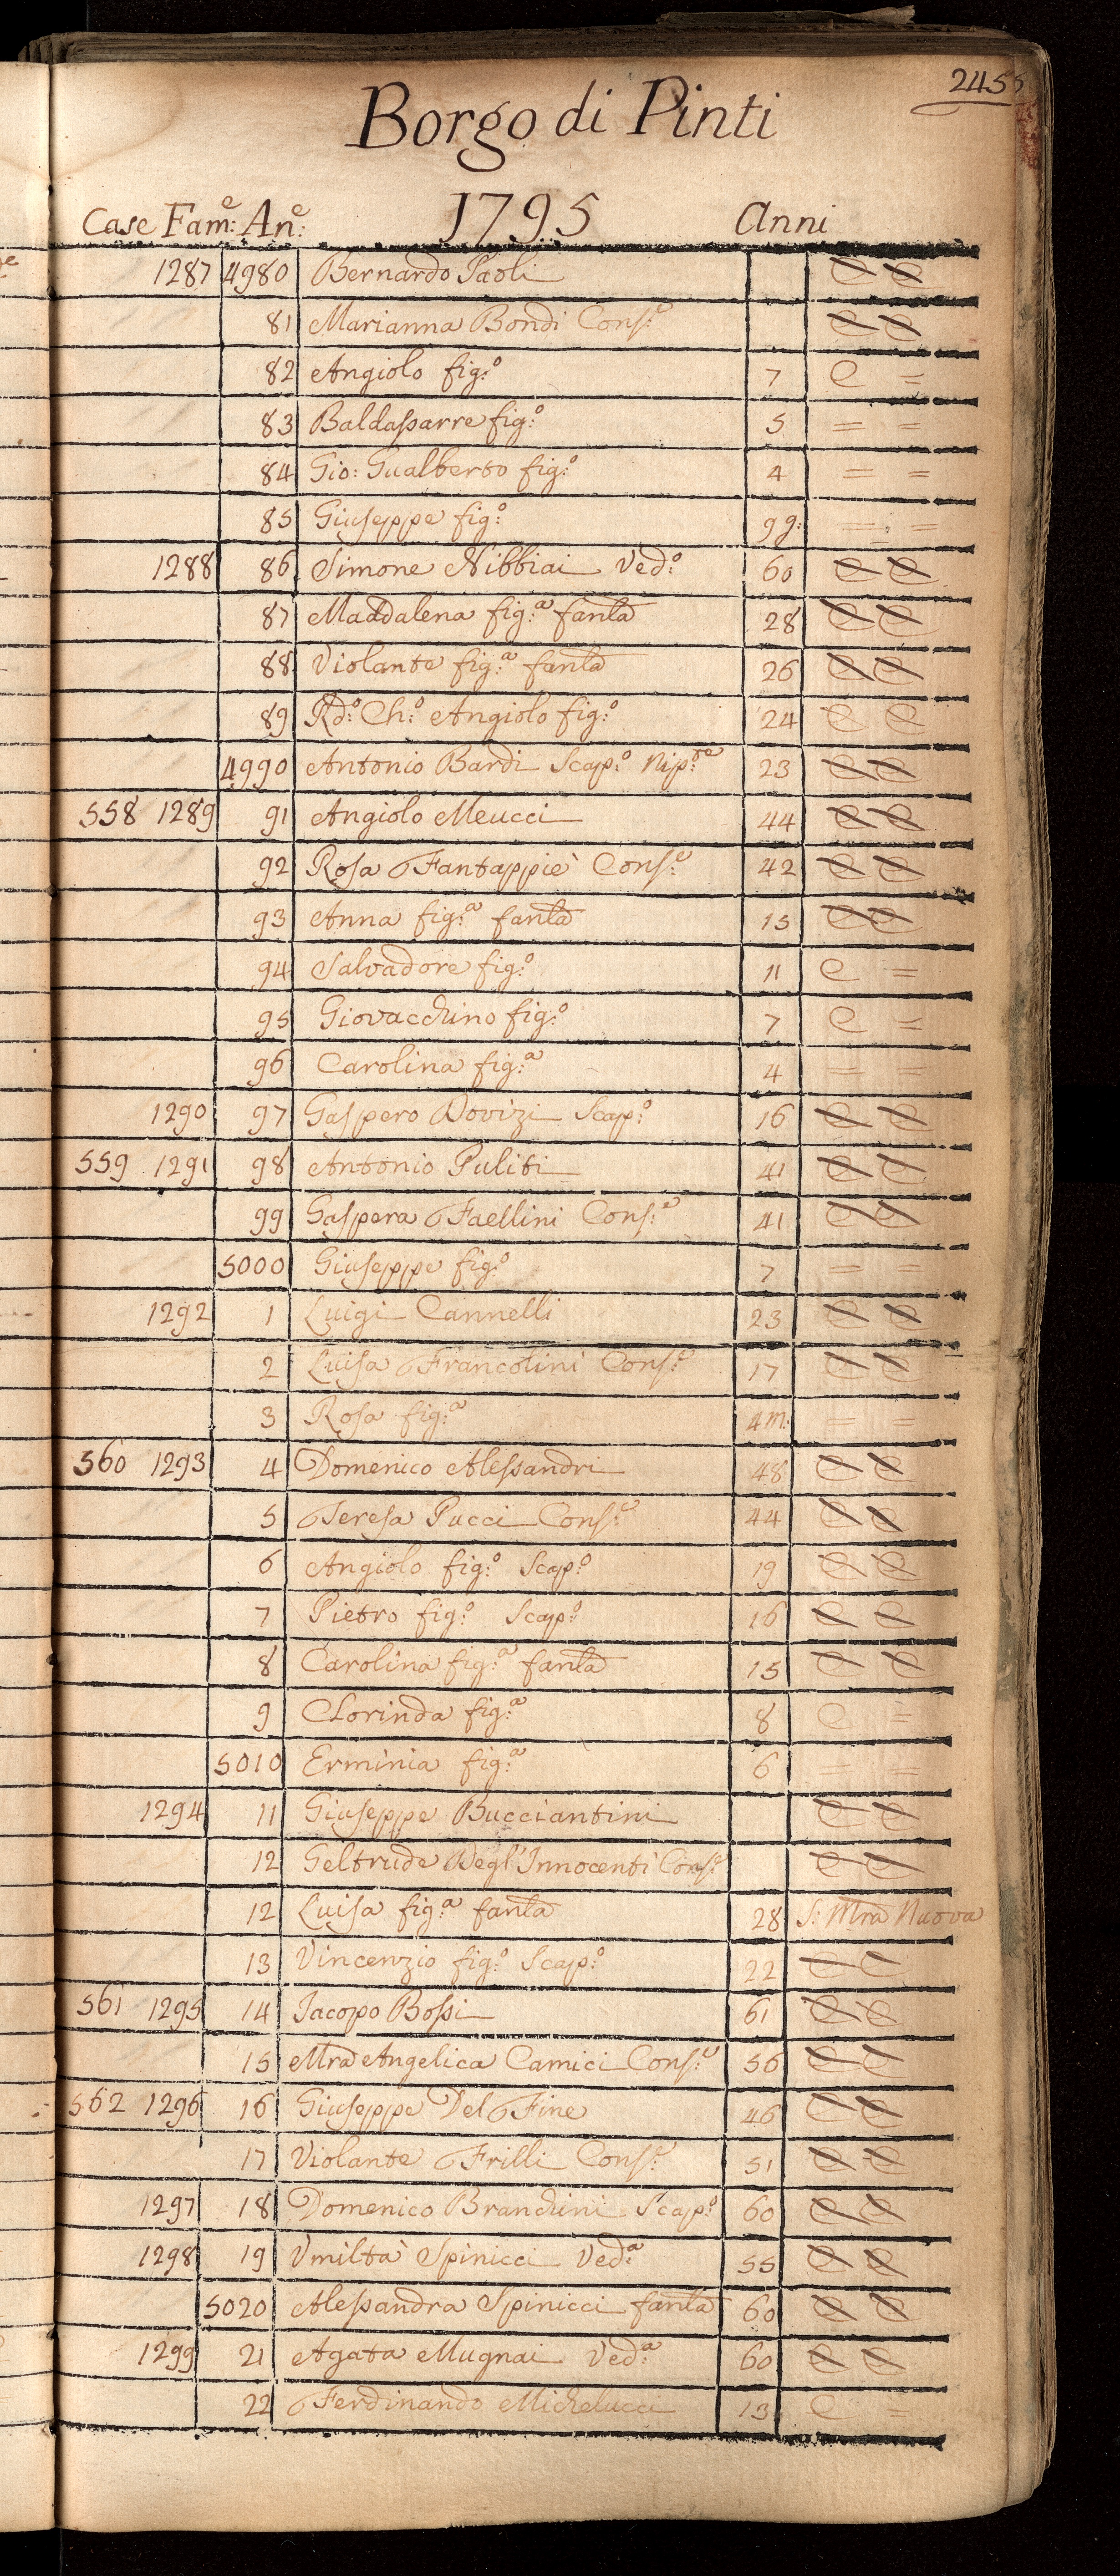 2455
Borgo di Pinti
1795
Case Fam:e An:e Anni
1287 4980 Bernardo Paoli C C
81 Marianna Bondi Cons:e C C
82 Angiolo fig:o 7 C =
83 Baldassarre fig:o 5 = =
84 Gio: Gualberto fig:o 4 = =
85 Giuseppe fig:o 9 g: = =
1288 86 Simone Nibbiai Ved:o 60 C C
87 Maddalena fig:a fanla 28 C C
88 Violante fig:a fanla 26 C C
89 Rd:o Ch:o Angiolo fig:o 24 C C
4990 Antonio Bardi Scap:o Nip:te 23 C C
558 1289 91 Angiolo Meucci 44 C C
92 Rosa Fantappiè Cons:e 42 C C
93 Anna fig:a fanla 15 C C
94 Salvadore fig:o 11 C =
95 Giovacchino fig:o 7 C =
96 Carolina fig:a 4 = =
1290 97 Gaspero Dovizi Scap:o 16 C C
559 1291 98 Antonio Puliti 41 C C
99 Gaspera Faellini Cons:e 41 C C
5000 Giuseppe fig:o 7 = =
1292 1 Luigi Cannelli 23 C C
2 Luisa Francolini Cons:e 17 C C
3 Rosa fig:a 4 m: = =
560 1293 4 Domenico Alessandri 48 C C
5 Teresa Pucci Cons:e 44 C C
6 Angiolo fig:o Scap:o 19 C C
7 Pietro fig:o Scap:o 16 C C
8 Carolina fig:a fanla 15 C C
9 Clorinda fig:a 8 C =
5010 Erminia fig:a 6 = =
1294 11 Giuseppe Bucciantini C C
12 Geltrude Degl'Innocenti Cons:e C C
12 Luisa fig:a fanla 28 S: Mra Nuova
13 Vincenzio fig:o Scap:o 22 C C
561 1295 14 Jacopo Bossi 61 C C
15 Mra Angelica Camici Cons:e 56 C C
562 1296 16 Giuseppe Del Fine 46 C C
17 Violante Frilli Cons:e 51 C C
1297 18 Domenico Brandini Scap:o 60 C C
1298 19 Vmiltà Spinicci Ved:a 55 C C
5020 Alessandra Spinicci fanla 60 C C
1299 21 Agata Mugnai Ved:a 60 C C
22 Ferdinando Michelucci 13 C =